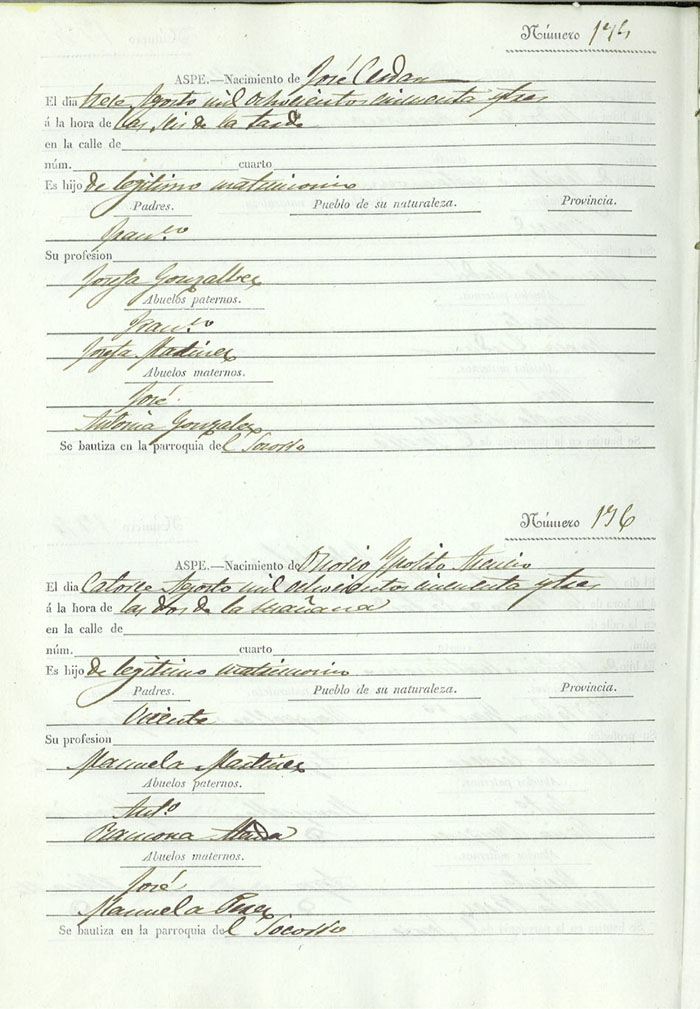 Número 175
ASPE.—Nacimiento de José Cerdan
El dia trece Agosto mil ochocientos cincuenta y tres
á la hora de las seis de la tarde
en la calle de
núm. cuarto
Es hijo de legitimo matrimonio
Padres. Pueblo de su naturaleza. Provincia.
Fran.co
Su profesion
Josefa Gonzalbez
Abuelos paternos.
Fran.co
Josefa Martinez
Abuelos maternos.
José
Antonia Gonzalez
Se bautiza en la parroquia del Socorro
Número 176
ASPE.—Nacimiento de Ypolito
El dia Catorce Agosto mil ochocientos cincuenta y tres
á la hora de las dos de la mañana
en la calle de
núm. cuarto
Es hijo de legitimo matrimonio
Padres. Pueblo de su naturaleza. Provincia.
Vicente
Su profesion
Manuela Martinez
Abuelos paternos.
Ant.o
Ramona
Abuelos maternos.
José
Manuela Perez
Se bautiza en la parroquia del Socorro